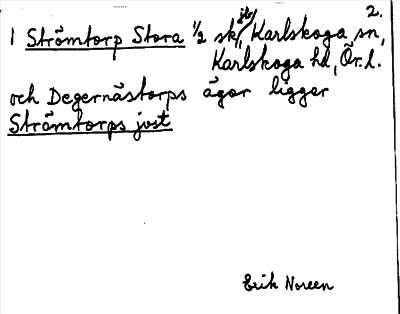 2.
I Strömtorp Stora 1/2 sk jb, Karlskoga sn,
Karlskoga hd, Ör.l.
och Degernästorps ägor ligger
Strömtorps just
Erik Noreen